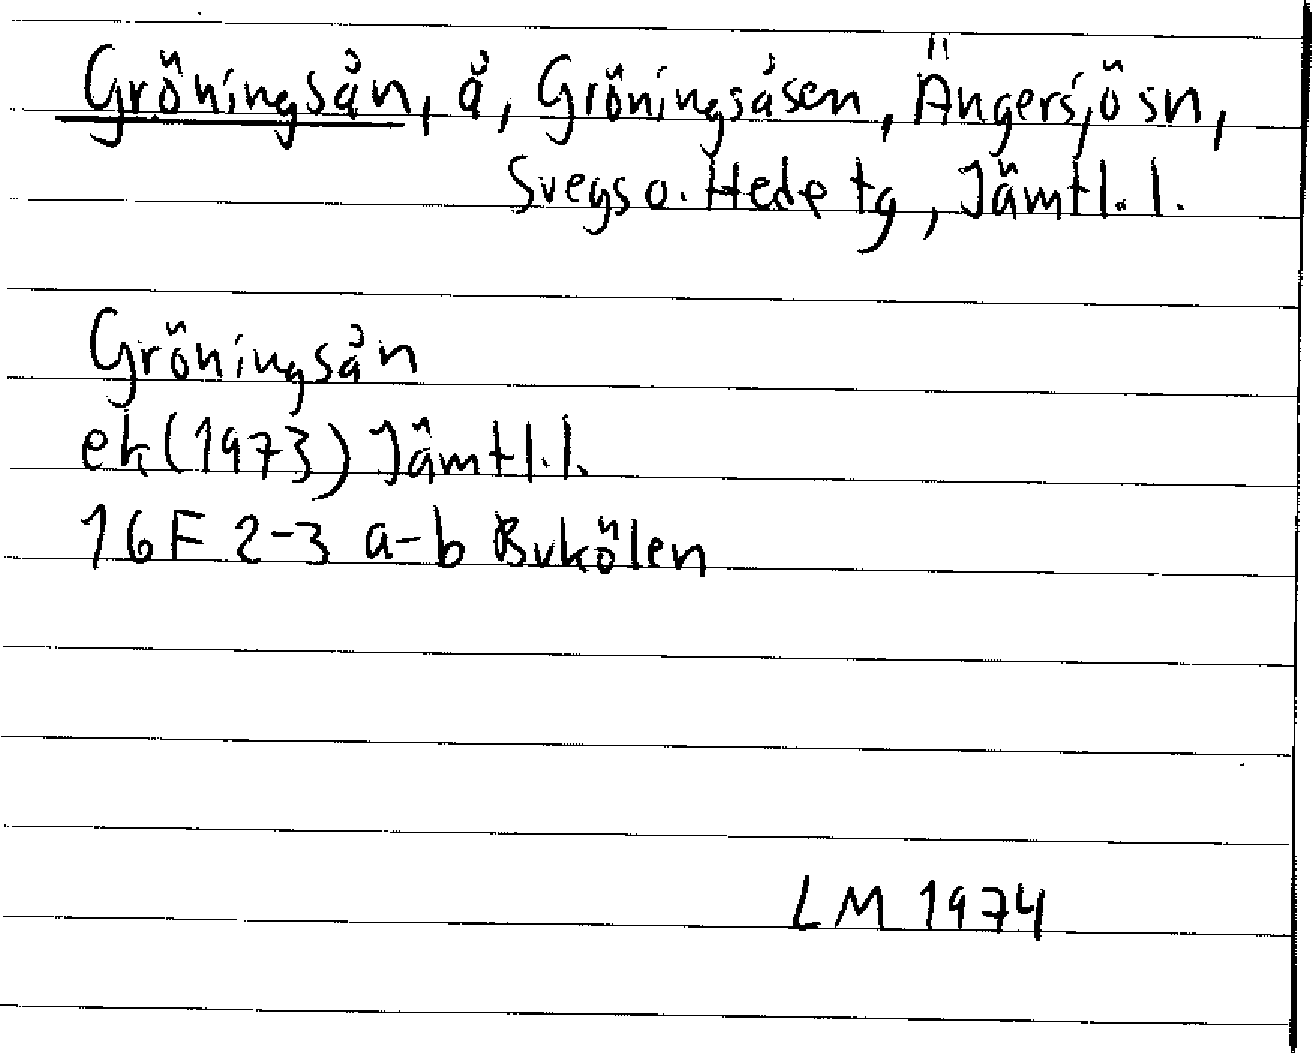 Gröningsån, å, Gröningsåsen, Ängersjö sn,
Svegs o. Hede tg, Jämtl. l.
Gröningsån
ek (1973) Jämtl. l.
16F 2-3 a-b Bukölen
LM 1974